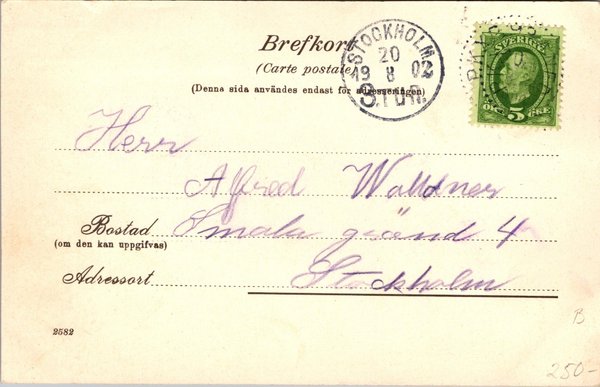 Brefkort
(Carte postale)
(Denna sida användes endast för adresseringen)
STOCKHOLM 2
20
19 8 02
3. TUR.
SVERIGE
5
ÖRE
Herr
Alfred Waldner
Bostad Smala gränd 4
(om den kan uppgifvas)
Adressort Stockholm
2582
B
250-